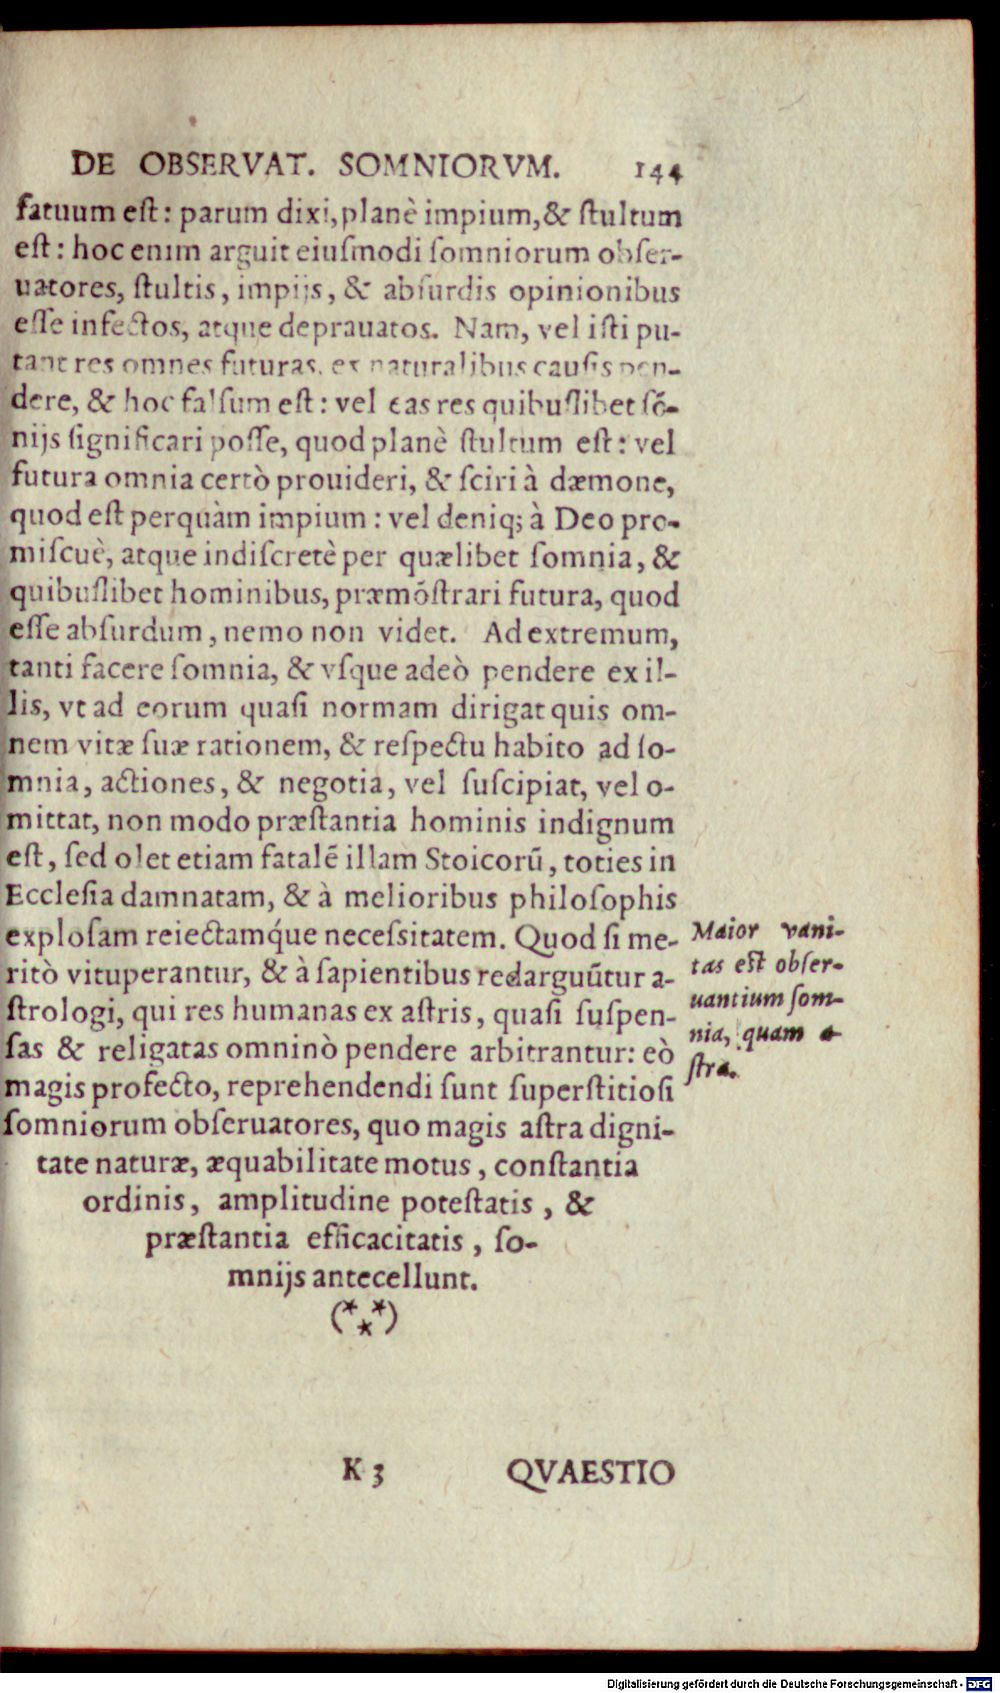 DE OBSERVAT. SOMNIORVM. 144
fatuum eſt: parum dixi, planè impium, & ſtultum
eſt: hoc enim arguit eiuſmodi ſomniorum obſer-
uatores, ſtultis, impijs, & abſurdis opinionibus
eſſe infectos, atque deprauatos. Nam, vel iſti pu-
tant res omnes futuras, ex naturalibus cauſis pen-
dere, & hoc falſum eſt: vel eas res quibuſlibet ſõ-
nijs ſignificari poſſe, quod planè ſtultum eſt: vel
futura omnia certò prouideri, & ſciri à dæmone,
quod eſt perquàm impium: vel deniq; à Deo pro-
miſcuè, atque indiſcretè per quælibet ſomnia, &
quibuſlibet hominibus, præmõſtrari futura, quod
eſſe abſurdum, nemo non videt. Ad extremum,
tanti facere ſomnia, & vſque adeò pendere ex il-
lis, vt ad eorum quaſi normam dirigat quis om-
nem vitæ ſuæ rationem, & reſpectu habito ad ſo-
mnia, actiones, & negotia, vel ſuſcipiat, vel o-
mittat, non modo præſtantia hominis indignum
eſt, ſed olet etiam fatalẽ illam Stoicorũ, toties in
Eccleſia damnatam, & à melioribus philoſophis
exploſam reiectamq́ue neceſsitatem. Quod ſi me-
ritò vituperantur, & à ſapientibus redarguũtur a-
ſtrologi, qui res humanas ex aſtris, quaſi ſuſpen-
ſas & religatas omninò pendere arbitrantur: eò
magis profecto, reprehendendi ſunt ſuperſtitioſi
ſomniorum obſeruatores, quo magis aſtra digni-
tate naturæ, æquabilitate motus, conſtantia
ordinis, amplitudine poteſtatis, &
præſtantia efficacitatis, ſo-
mnijs antecellunt.
(***)
Maior vani-
tas eſt obſer-
uantium ſom-
nia, quam a-
ſtra.
K 3 QVAESTIO
Digitalisierung gefördert durch die Deutsche Forschungsgemeinschaft - DFG